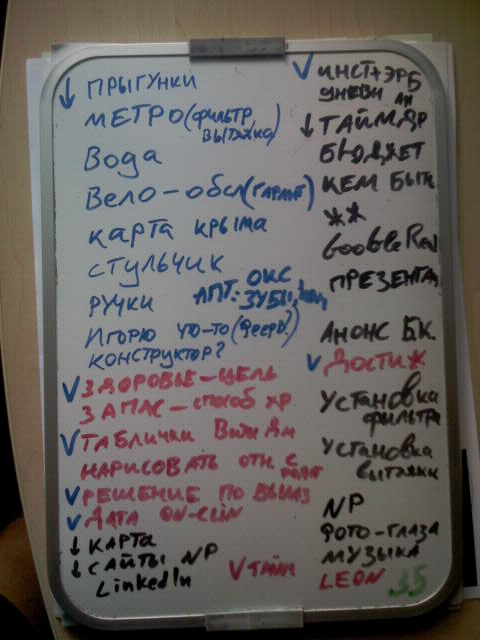 ↓ ПРЫГУНКИ
МЕТРО (ФИЛЬТР,
ВЫТЯЖКА)
Вода
Вело – обсл (ГАРАНТ)
карта Крыма
СТУЛЬЧИК
РУЧКИ АПТ: ОКС
ЗУБН,
ИГОРЮ ЧТО-ТО (ФЕЕРВ?)
КОНСТРУКТОР?
√ ЗДОРОВЬЕ – ЦЕЛЬ
ЗАПАС – способ хр
√ ТАБЛИЧКИ
НАРИСОВАТЬ ОТН С
√ РЕШЕНИЕ ПО
√ ДАТА ON-
↓ КАРТА
↓ САЙТЫ NP
LinkedIn √ ТАЙМ
√ ИНСТ+ЭРБ
↓ ТАЙМДР
БЮДЖЕТ
КЕМ БЫТЬ
**
GooGle
ПРЕЗЕНТАЦ
АНОНС БК.
√ ДОСТИЖ
УСТАНОВКА
ФИЛЬТРА
УСТАНОВКА
ВЫТЯЖКИ
NP
ФОТО-ГЛАЗА
МУЗЫКА
LEON 35